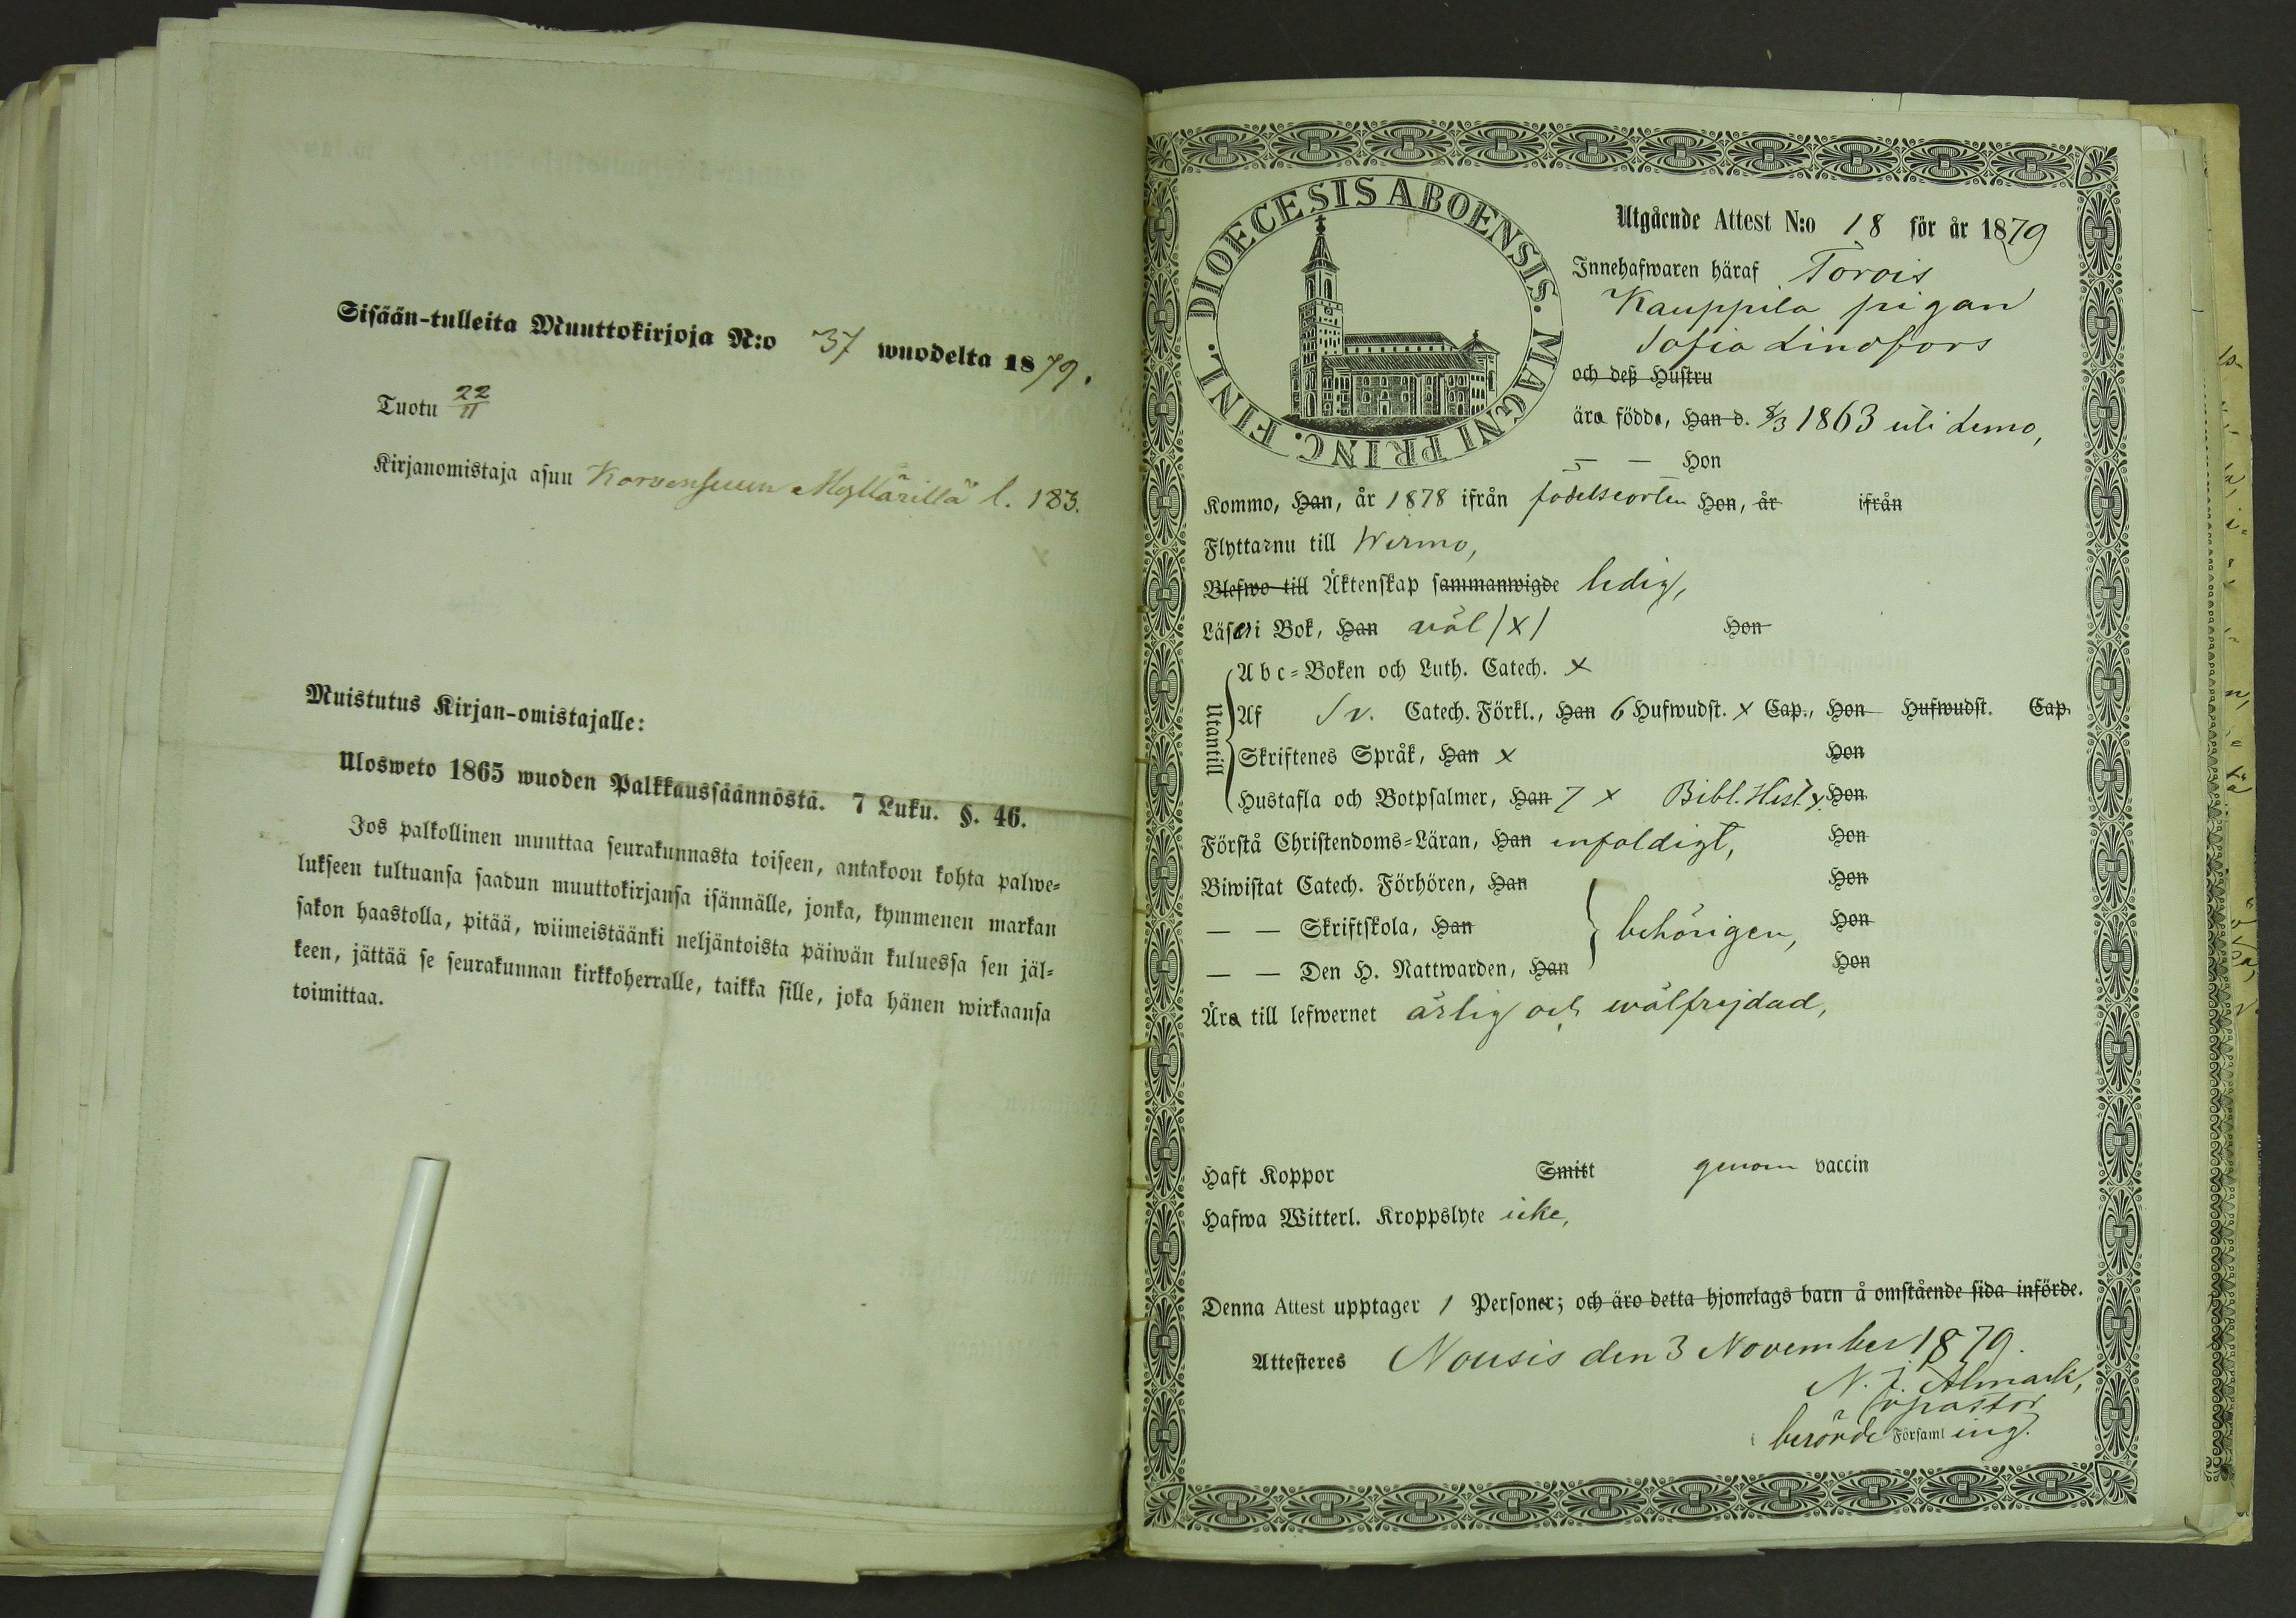 Sisään-tulleita Muuttokirjoja N:o 37 wuodelta 1879.
Tuotu 22/11
Kirjanomistaja asuu Korvensuun Myllärillä l. 183.
Muistutus Kirjan-omistajalle:
Ulosweto 1865 wuoden Palkkaussäännöstä. 7 Luku. §. 46.
Jos palkollinen muuttaa seurakunnasta toiseen, antakoon kohta palwe-
lukseen tultuansa saadun muuttokirjansa isännälle, jonka, kymmenen markan
sakon haastolla, pitää, wiimeistäänki neljäntoista päiwän kuluessa sen jäl-
keen, jättää se seurakunnan kirkkoherralle, taikka sille, joka hänen wirkaansa
toimittaa.
DIOECESIS ABOENSIS. MAGNI PRINC. FINL.
Utgående Attest N:o 18 för år 1879
Innehafwaren häraf Torois
Kauppila pigan
Sofia Lindfors
och deß Hustru
ära födda, Han d. 8/3 1863 uti Lemo,
— — Hon
Kommo, Han, år 1878 ifrån födelseorten Hon, år ifrån
Flyttar nu till Wirmo,
Blefwo till Äktenskap sammanwigde ledig,
Läser i Bok, Han väl /x/ Hon
Utantill
Abc-Boken och Luth. Catech. x
Af Sv. Catech. Förkl., Han 6 Hufwudst. x Cap., Hon Hufwudst. Cap.
Skriftenes Språk, Han x Hon
Hustafla och Botpsalmer, Han 7 x Bibl. Hist. x Hon
Förstå Christendoms-Läran, Han enfaldigt, Hon
Biwistat Catech. Förhören, Han Hon
— — Skriftskola, Han behörigen, Hon
— — Den H. Nattwarden, Han Hon
Ära till lefwernet ärlig och wälfrejdad,
Haft Koppor Smitt genom vaccin
Hafwa Witterl. Kroppslyte icke,
Denna Attest upptager 1 Personer; och äro detta hjonelags barn å omstående sida införde.
Attesteres Nousis den 3 November 1879.
N. J. Almark,
v. pastor
berörde Församl ing.